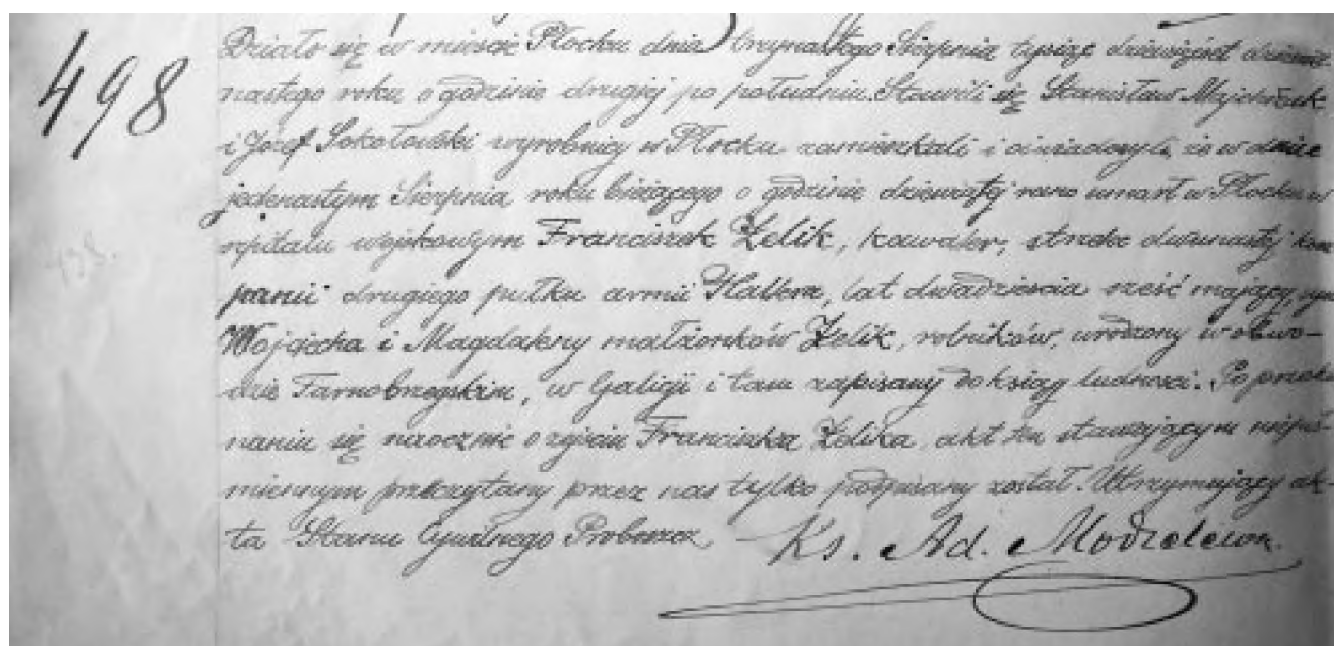 498
Działo się w mieście Płocku dnia trzynastego Sierpnia tysiąc dziewięćset dziewięt-
nastego roku o godzinie drugiej po południu. Stawili się Stanisław
i Józef Sokołowski wyrobnicy w Płocku zamieszkali i oświadczyli, że w dniu
jedenastym Sierpnia roku bieżącego o godzinie dziewiątej rano umarł w Płocku w
szpitalu wojskowym Franciszek Zelik, kawaler, strzelec dwunastej kom
panii drugiego pułku armii Hallera, lat dwadzieścia sześć mający, syn
Wojciecha i Magdaleny małżonków Zelik, rolników, urodzony w obwo-
dzie Tarnobrzeskim, w Galicji i tam zapisany do ksiąg ludności. Po przeko
naniu się naocznie o zejściu Franciszka Zelika, akt ten stawającym niepiś-
miennym przeczytany przez nas tylko podpisany został. Utrzymujący ak-
ta Stanu Cywilnego Proboszcz Ks. Ad. Modzelewski.